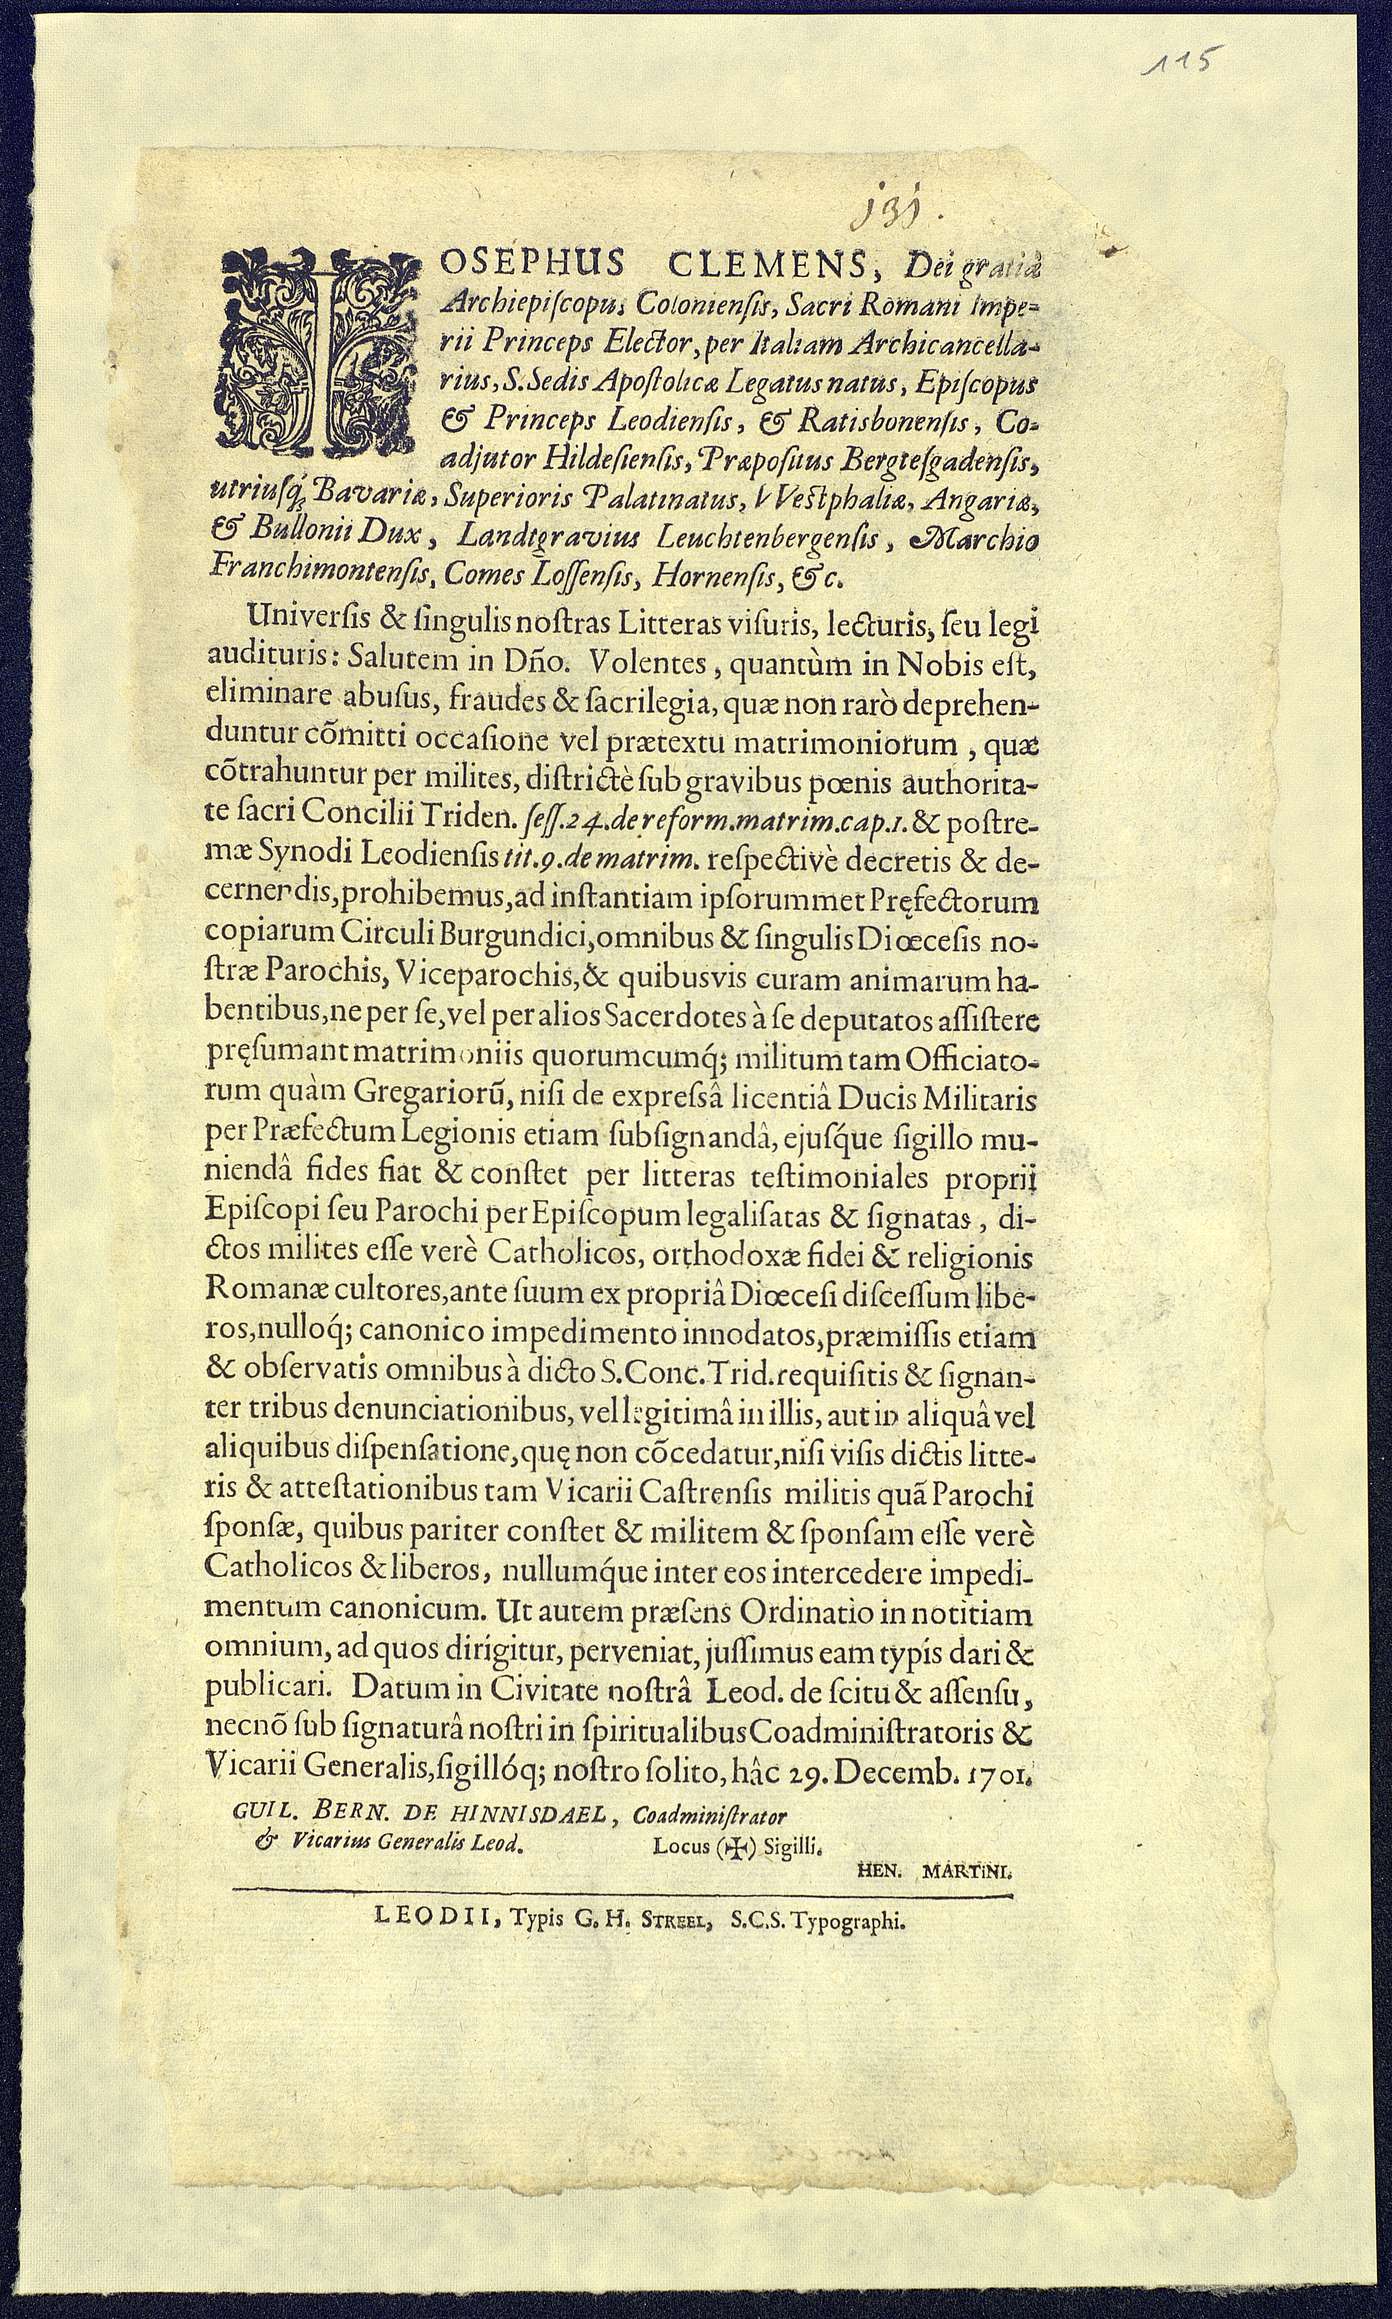 115
131.
IOSEPHUS CLEMENS, Dei gratiâ
Archiepiſcopus Coloniensis, Sacri Romani Impe-
rii Princeps Elector, per Italiam Archicancella-
rius, S. Sedis Apoſtolicæ Legatus natus, Epiſcopus
& Princeps Leodienſis, & Ratisbonenſis, Co-
adjutor Hildeſienſis, Præpoſitus Bergteſgadenſis,
utriuſq́; Bavariæ, Superioris Palatinatus, VVeſtphaliæ, Angariæ,
& Bullonii Dux, Landtgravius Leuchtenbergenſis, Marchio
Franchimontenſis, Comes Loſſenſis, Hornenſis, &c.
Universis & ſingulis noſtras Litteras viſuris, lecturis, ſeu legi
audituris: Salutem in Dño. Volentes, quantùm in Nobis eſt,
eliminare abuſus, fraudes & ſacrilegia, quæ non rarò deprehen-
duntur cõmitti occaſione vel prætextu matrimoniorum, quæ
cõtrahuntur per milites, diſtrictè ſub gravibus pœnis authorita-
te ſacri Concilii Triden. ſeſſ. 24. de reform. matrim. cap. 1. & poſtre-
mæ Synodi Leodienſis tit. 9. de matrim. reſpectivè decretis & de-
cernendis, prohibemus, ad inſtantiam ipſorummet Pręfectorum
copiarum Circuli Burgundici, omnibus & ſingulis Diœceſis no-
ſtræ Parochis, Viceparochis, & quibusvis curam animarum ha-
bentibus, ne per ſe, vel per alios Sacerdotes à ſe deputatos aſſiſtere
pręſumant matrimoniis quorumcumq́; militum tam Officiato-
rum quàm Gregariorũ, niſi de expreſsâ licentiâ Ducis Militaris
per Præfectum Legionis etiam ſubſignandâ, ejuſq́ue ſigillo mu-
niendâ fides fiat & conſtet per litteras teſtimoniales proprii
Epiſcopi ſeu Parochi per Epiſcopum legaliſatas & ſignatas, di-
ctos milites eſſe verè Catholicos, orthodoxæ fidei & religionis
Romanæ cultores, ante ſuum ex propriâ Diœceſi diſceſſum libe-
ros, nulloq́; canonico impedimento innodatos, præmiſſis etiam
& obſervatis omnibus à dicto S. Conc. Trid. requiſitis & ſignan-
ter tribus denunciationibus, vel legitimâ in illis, aut in aliquâ vel
aliquibus diſpenſatione, quę non cõcedatur, niſi viſis dictis litte-
ris & atteſtationibus tam Vicarii Caſtrenſis militis quã Parochi
ſponſæ, quibus pariter conſtet & militem & ſponſam eſſe verè
Catholicos & liberos, nullumq́ue inter eos intercedere impedi-
mentum canonicum. Ut autem præſens Ordinatio in notitiam
omnium, ad quos dirigitur, perveniat, juſſimus eam typis dari &
publicari. Datum in Civitate noſtrâ Leod. de ſcitu & aſſenſu,
necnõ ſub ſignaturâ noſtri in ſpiritualibus Coadminiſtratoris &
Vicarii Generalis, ſigillóq; noſtro ſolito, hâc 29. Decemb. 1701.
GUIL. BERN. DE HINNISDAEL, Coadminiſtrator
& Vicarius Generalis Leod. Locus (✠) Sigilli.
HEN. MARTINI.
LEODII, Typis G. H. STREEL, S.C.S. Typographi.